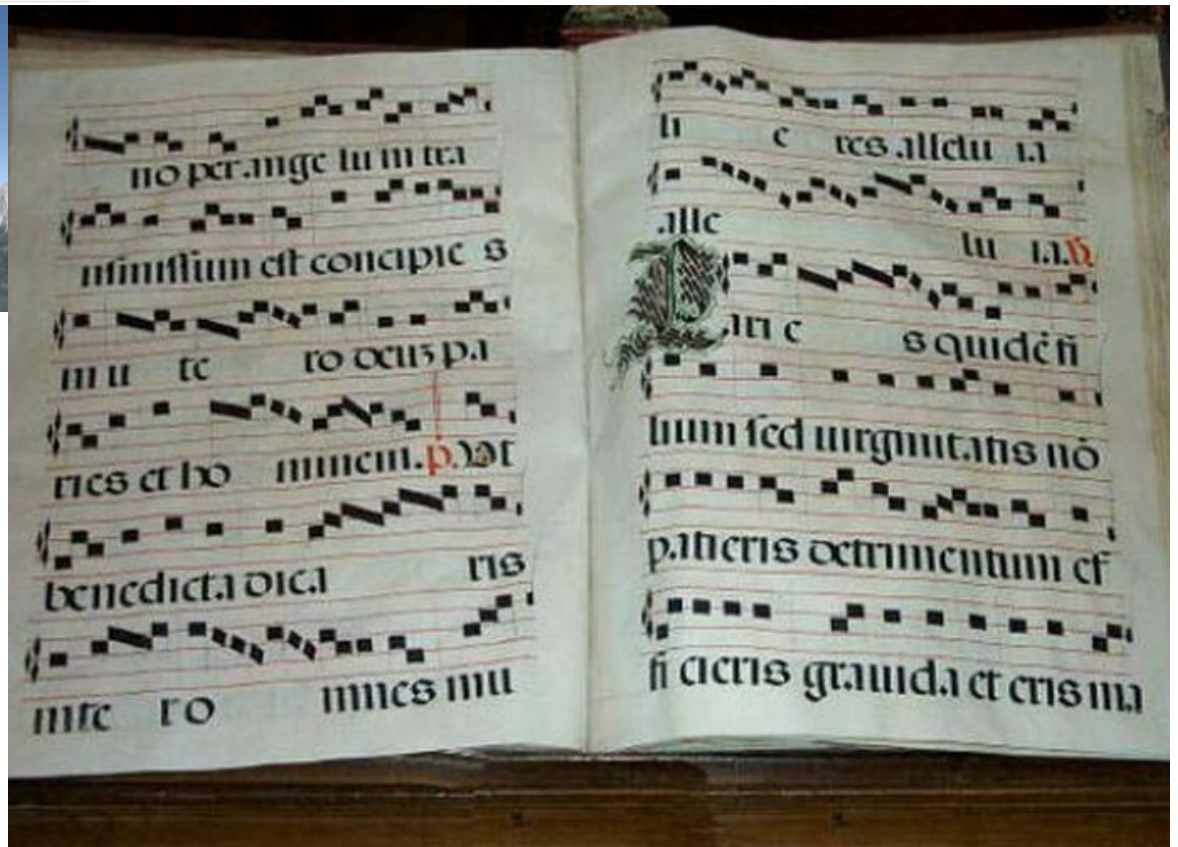 no per ange lum tra
nsmissum est concipie s
in u te ro deus pa
ries et ho minem. p. Vt
benedicta dica ris
inte r o mnes mu
li e res allelu ia
alle lu ia. v.
Pari e s quidē fi
lium sed uirginitatis nō
patieris detrimentum ef
fi cieris grauida et eris ma